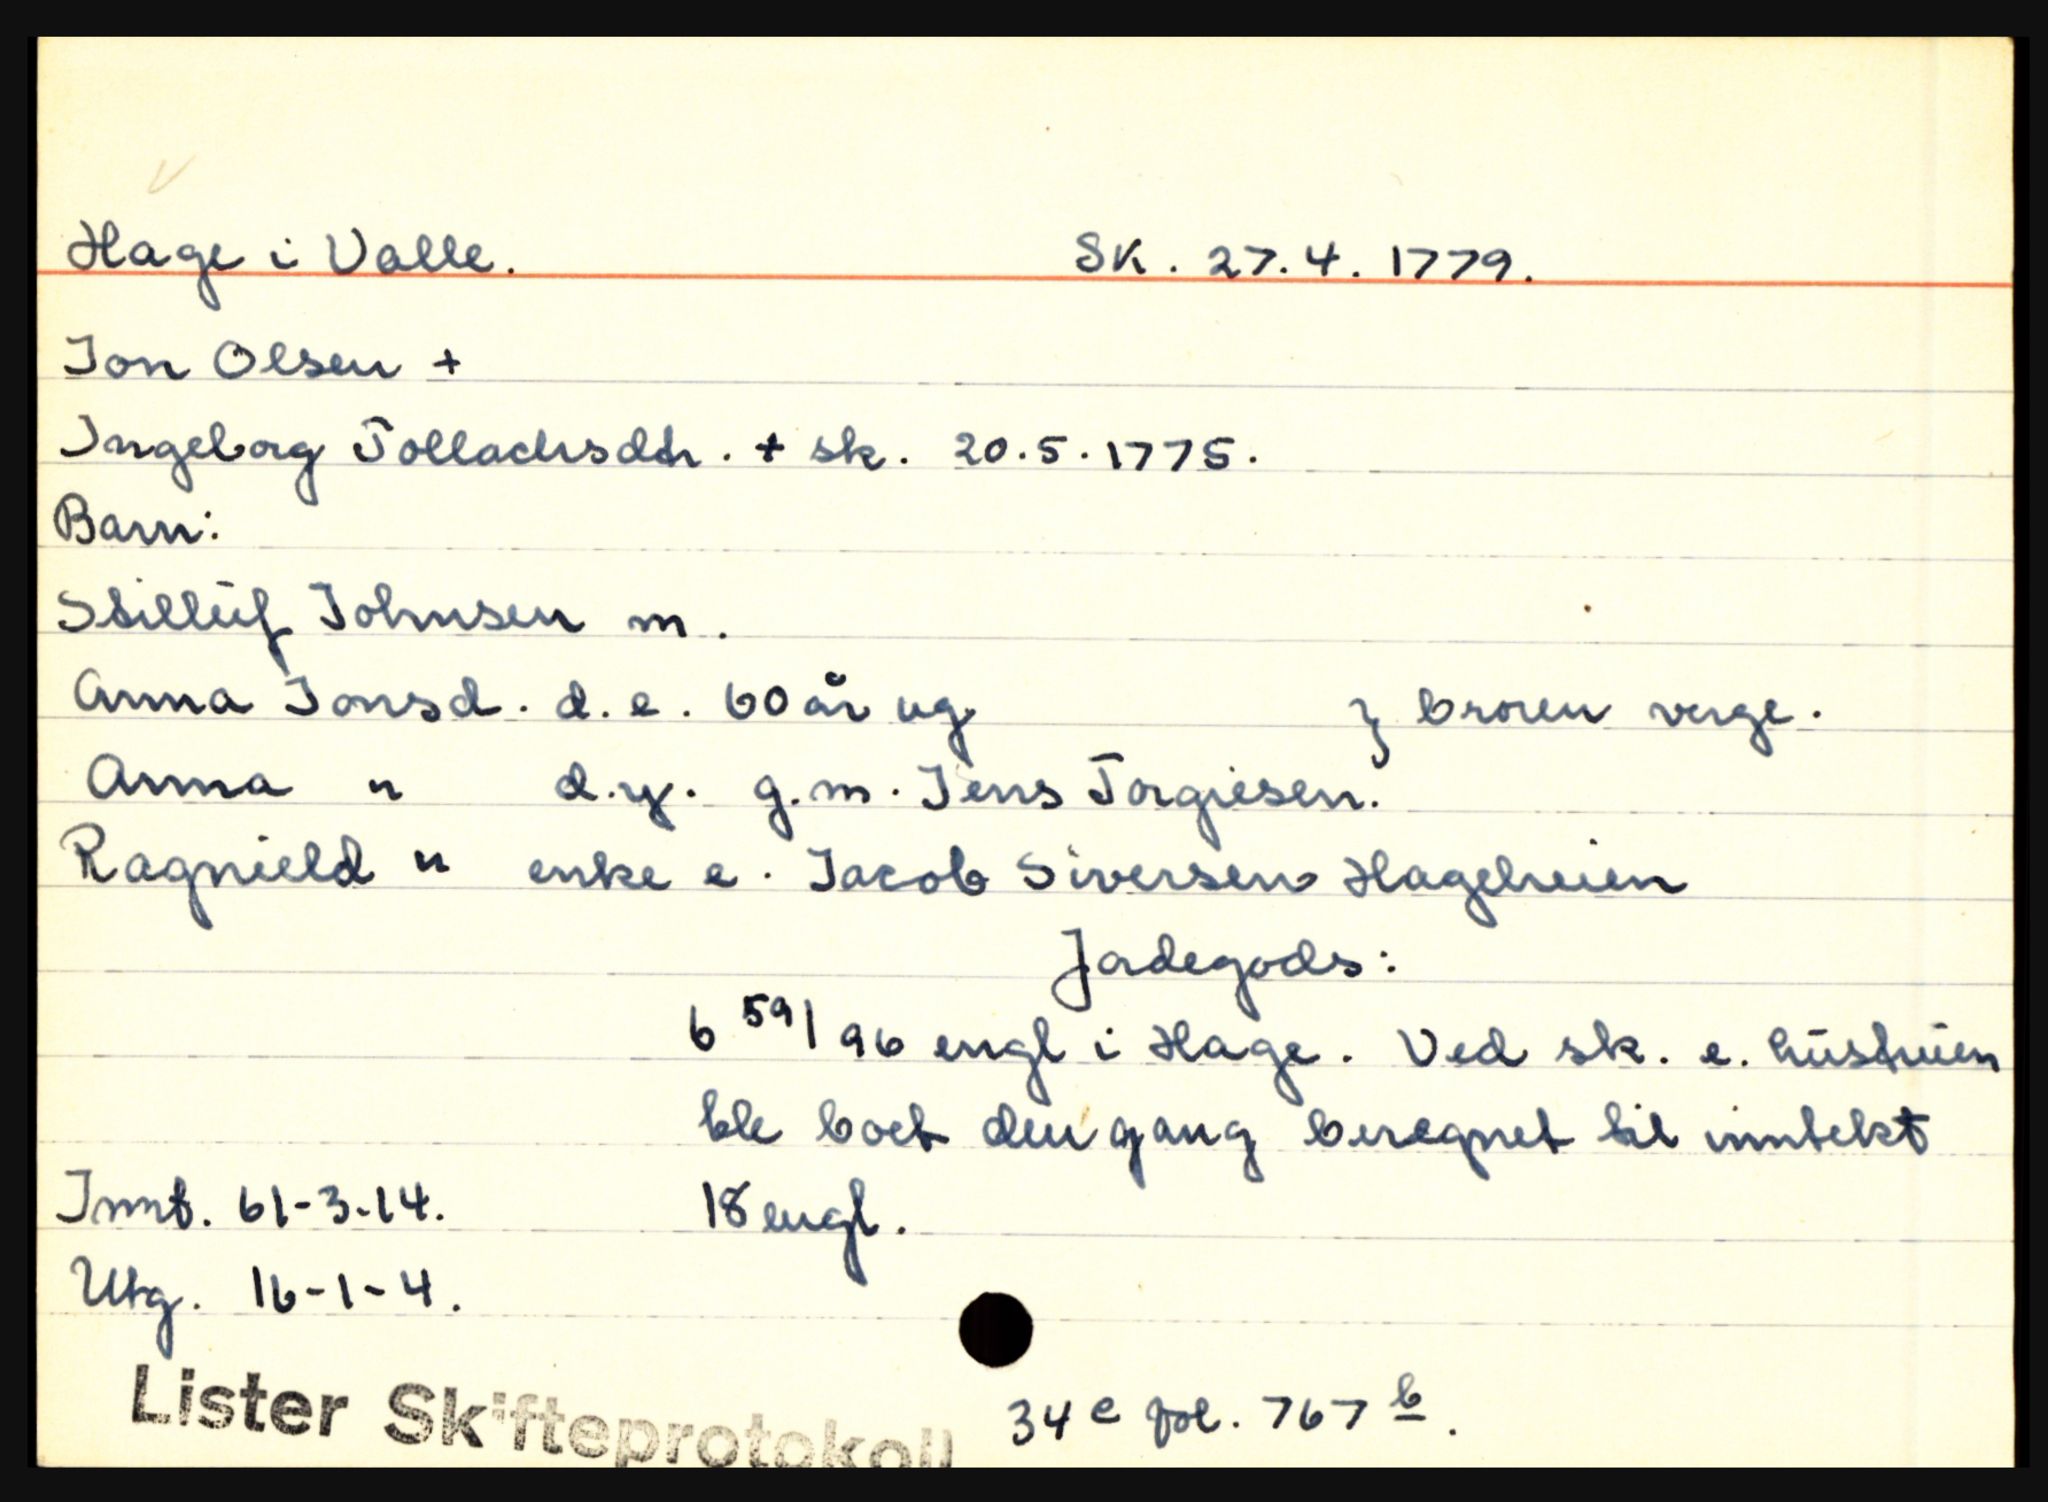 Hage i Valle. Sk. 27.4.1779.
Jon Olsen +
Ingeborg Tollachsdtr. + sk. 20.5.1775.
Barn:
Stilluf Johnsen m.
Anna Jonsd. d.e. 60 år ug. } broren verge.
Anna " d.y. g.m. Jens Torgiesen.
Ragnield " enke e. Jacob Siversen Hageheien
Jordegods:
6 59/96 engl i Hage. Ved sk. e. hustruen
ble boet den gang beregnet til inntekt
Innt. 61-3-14. 18 engl.
Utg. 16-1-4.
Lister Skifteprotokoll 34 e fol. 767 b.